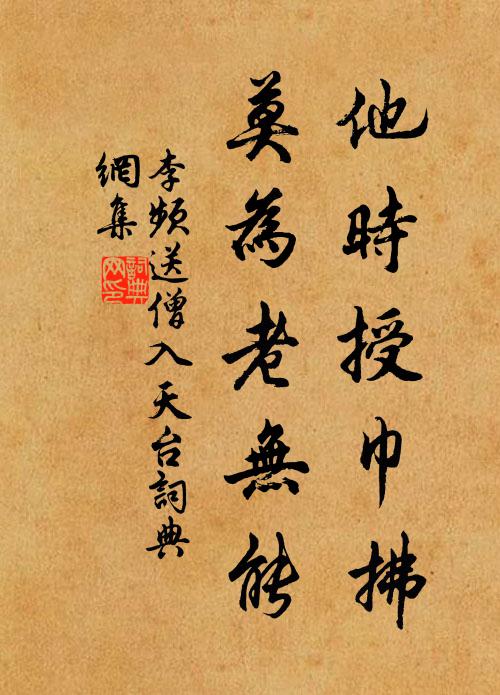 他時授巾拂
莫為老無能
李頻送僧入天台詞典
網集
詞典網印